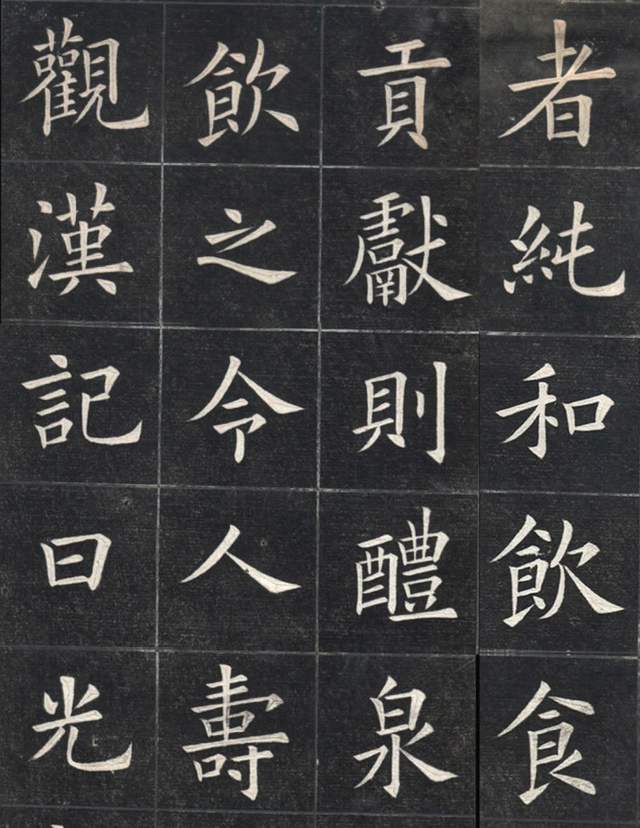 者純和飲食
貢獻則醴泉
飲之令人壽
觀漢記曰光